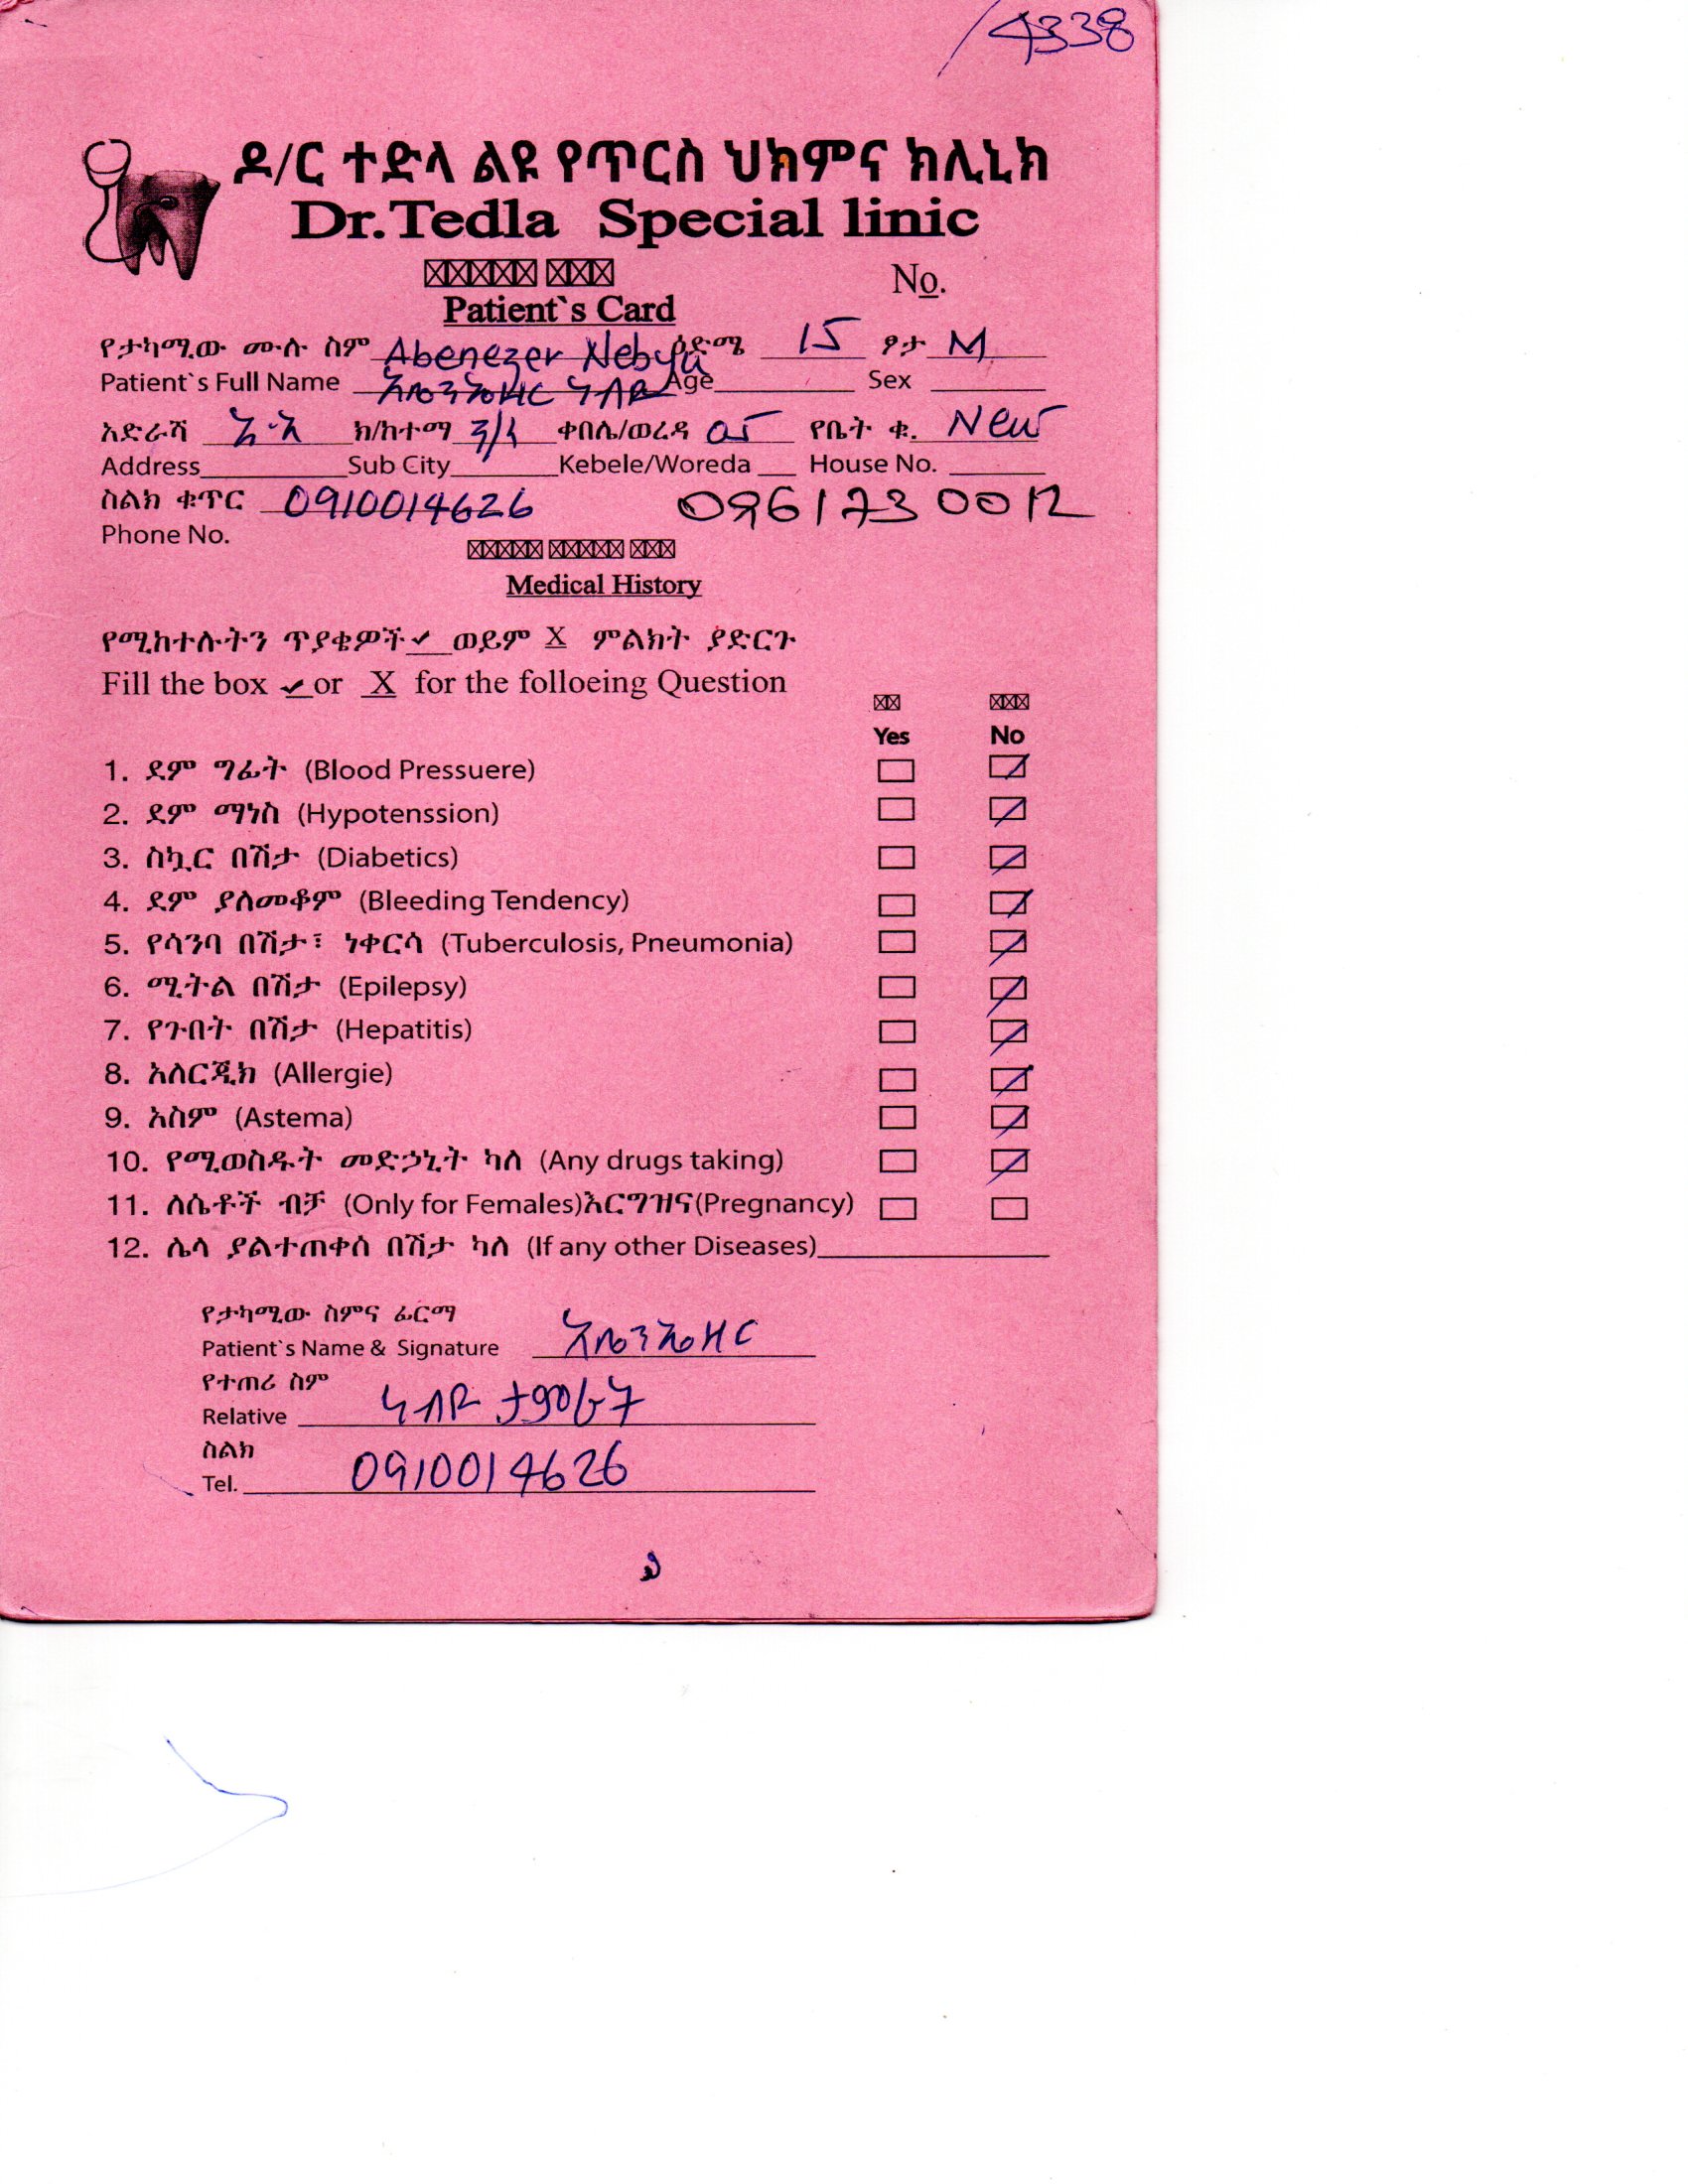 4338
ዶ/ር ተድላ ልዩ የጥርስ ህክምና ክሊኒክ
Dr.Tedla Special linic
No.
Patient`s Card
የታካሚው ሙሉ ስም Abenezer Nebyu ዕድሜ 15 ፆታ M
Patient`s Full Name አቤንኤዘር ነብዩ Age Sex
አድራሻ አ.አ ክ/ከተማ ቀበሌ/ወረዳ 05 የቤት ቁ. New
Address Sub City Kebele/Woreda House No.
ስልክ ቁጥር 0910014626 0961730012
Phone No.
Medical History
የሚከተሉትን ጥያቄዎች ✓ ወይም X ምልክት ያድርጉ
Fill the box ✓ or X for the folloeing Question
Yes No
1. ደም ግፊት (Blood Pressuere)
2. ደም ማነስ (Hypotenssion)
3. ስኳር በሽታ (Diabetics)
4. ደም ያለመቆም (Bleeding Tendency)
5. የሳንባ በሽታ፣ ነቀርሳ (Tuberculosis, Pneumonia)
6. ሚትል በሽታ (Epilepsy)
7. የጉበት በሽታ (Hepatitis)
8. አለርጂክ (Allergie)
9. አስም (Astema)
10. የሚወስዱት መድኃኒት ካለ (Any drugs taking)
11. ለሴቶች ብቻ (Only for Females)እርግዝና(Pregnancy)
12. ሌላ ያልተጠቀሰ በሽታ ካለ (If any other Diseases)
የታካሚው ስምና ፊርማ
Patient`s Name & Signature አቤንኤዘር
የተጠሪ ስም
Relative ነብዩ
ስልክ
Tel. 0910014626